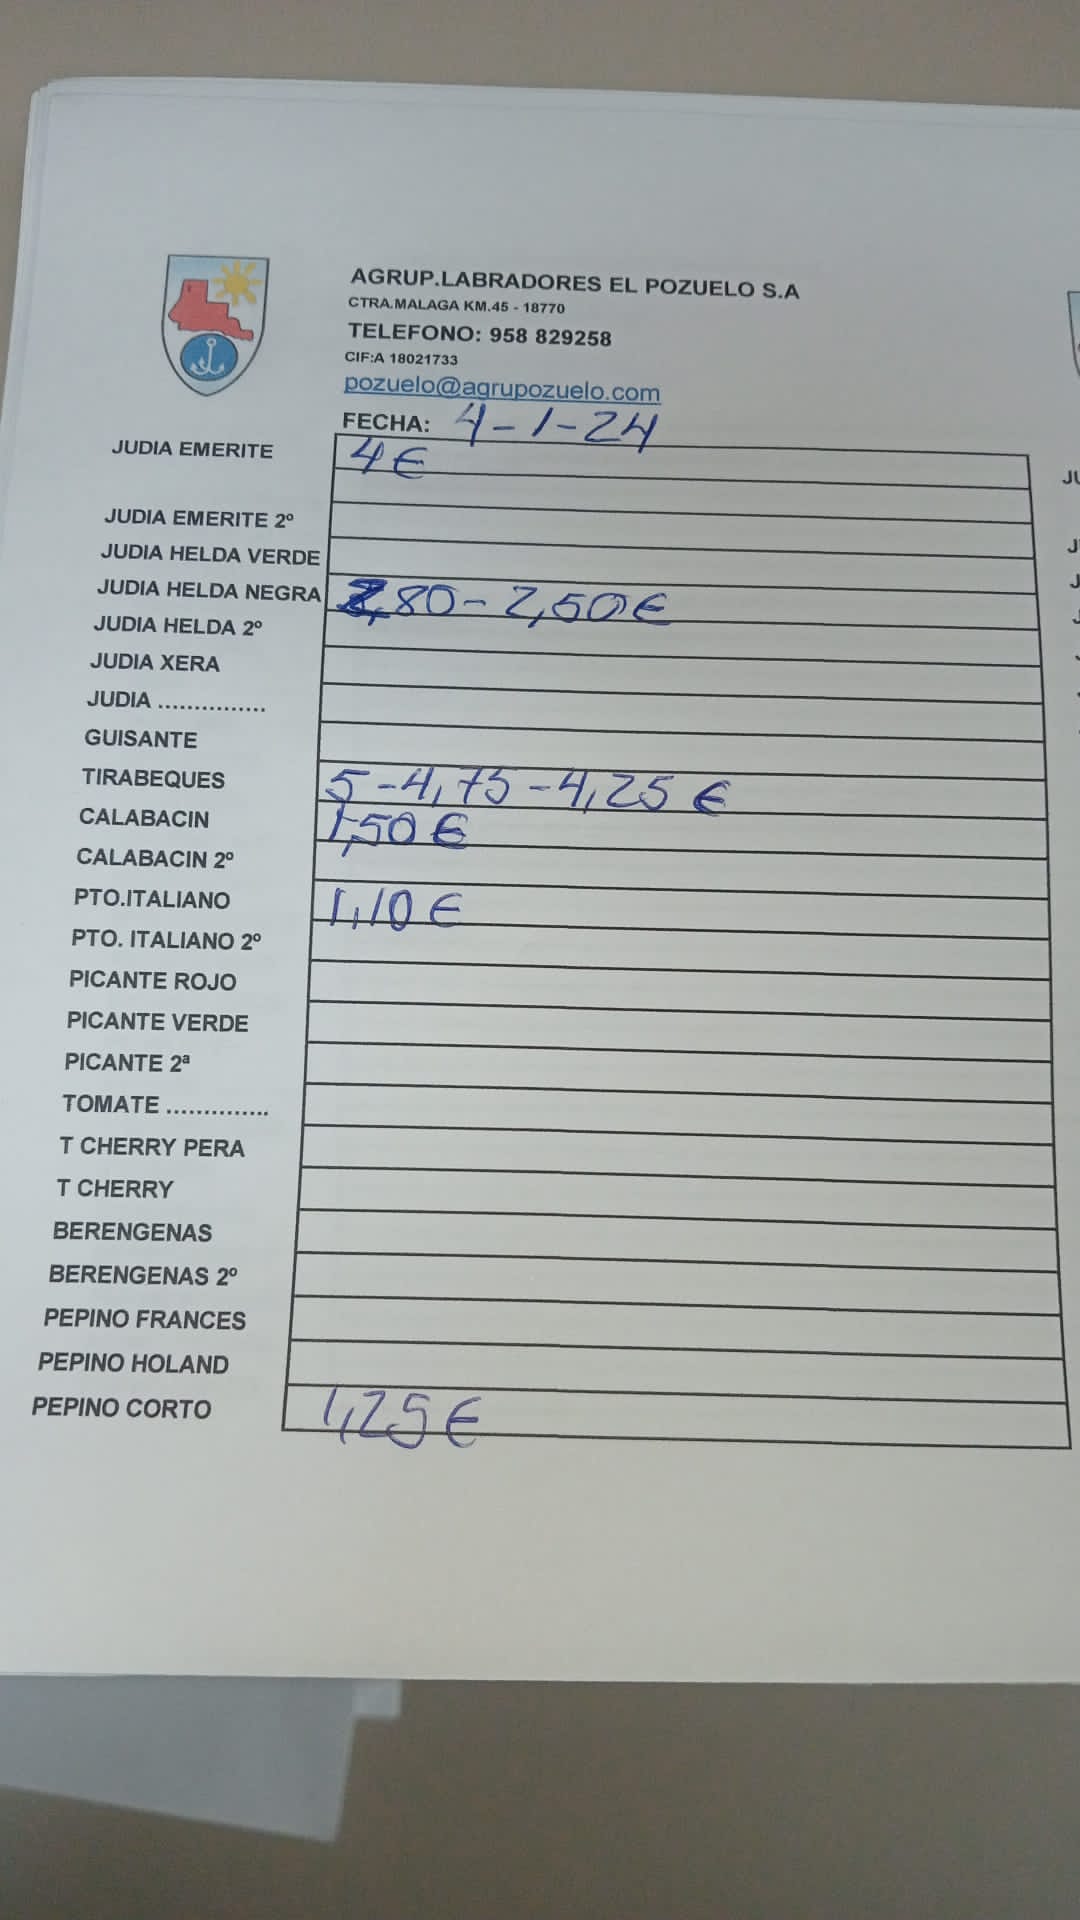 AGRUP.LABRADORES EL POZUELO S.A
CTRA.MALAGA KM.45 - 18770
TELEFONO: 958 829258
CIF:A 18021733
pozuelo@agrupozuelo.com
FECHA: 4-1-24
JUDIA EMERITE 4€
JUDIA EMERITE 2º
JUDIA HELDA VERDE
JUDIA HELDA NEGRA 2,80-2,50€
JUDIA HELDA 2º
JUDIA XERA
JUDIA ...............
GUISANTE
TIRABEQUES 5-4,75-4,25 €
CALABACIN 1,50 €
CALABACIN 2º
PTO.ITALIANO 1,10 €
PTO. ITALIANO 2º
PICANTE ROJO
PICANTE VERDE
PICANTE 2ª
TOMATE ..............
T CHERRY PERA
T CHERRY
BERENGENAS
BERENGENAS 2º
PEPINO FRANCES
PEPINO HOLAND
PEPINO CORTO 1,25€